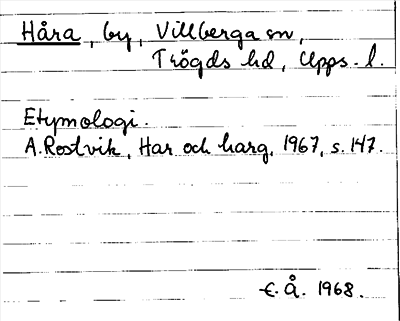 Håra, by, Villberga sn,
Trögds hd, Upps. l.
Etymologi.
A. Rostvik, Har och harg, 1967, s. 147.
E. Å. 1968.